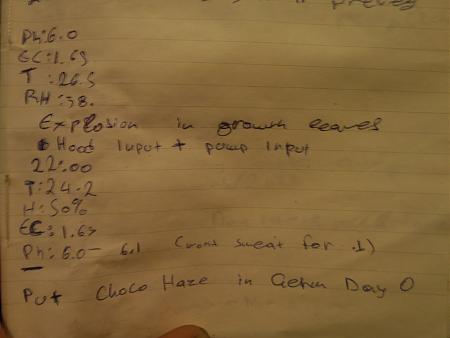 Ph:6.0
EC:1.69
T:26.5
RH:38.
Explosion in growth leaves
Hood Input + pump input
22:00
T:24.2
H:50%
EC:1.69
Ph:6.0- 6.1 (wont sweat for .1)
Put Choco Haze in Germ Day 0